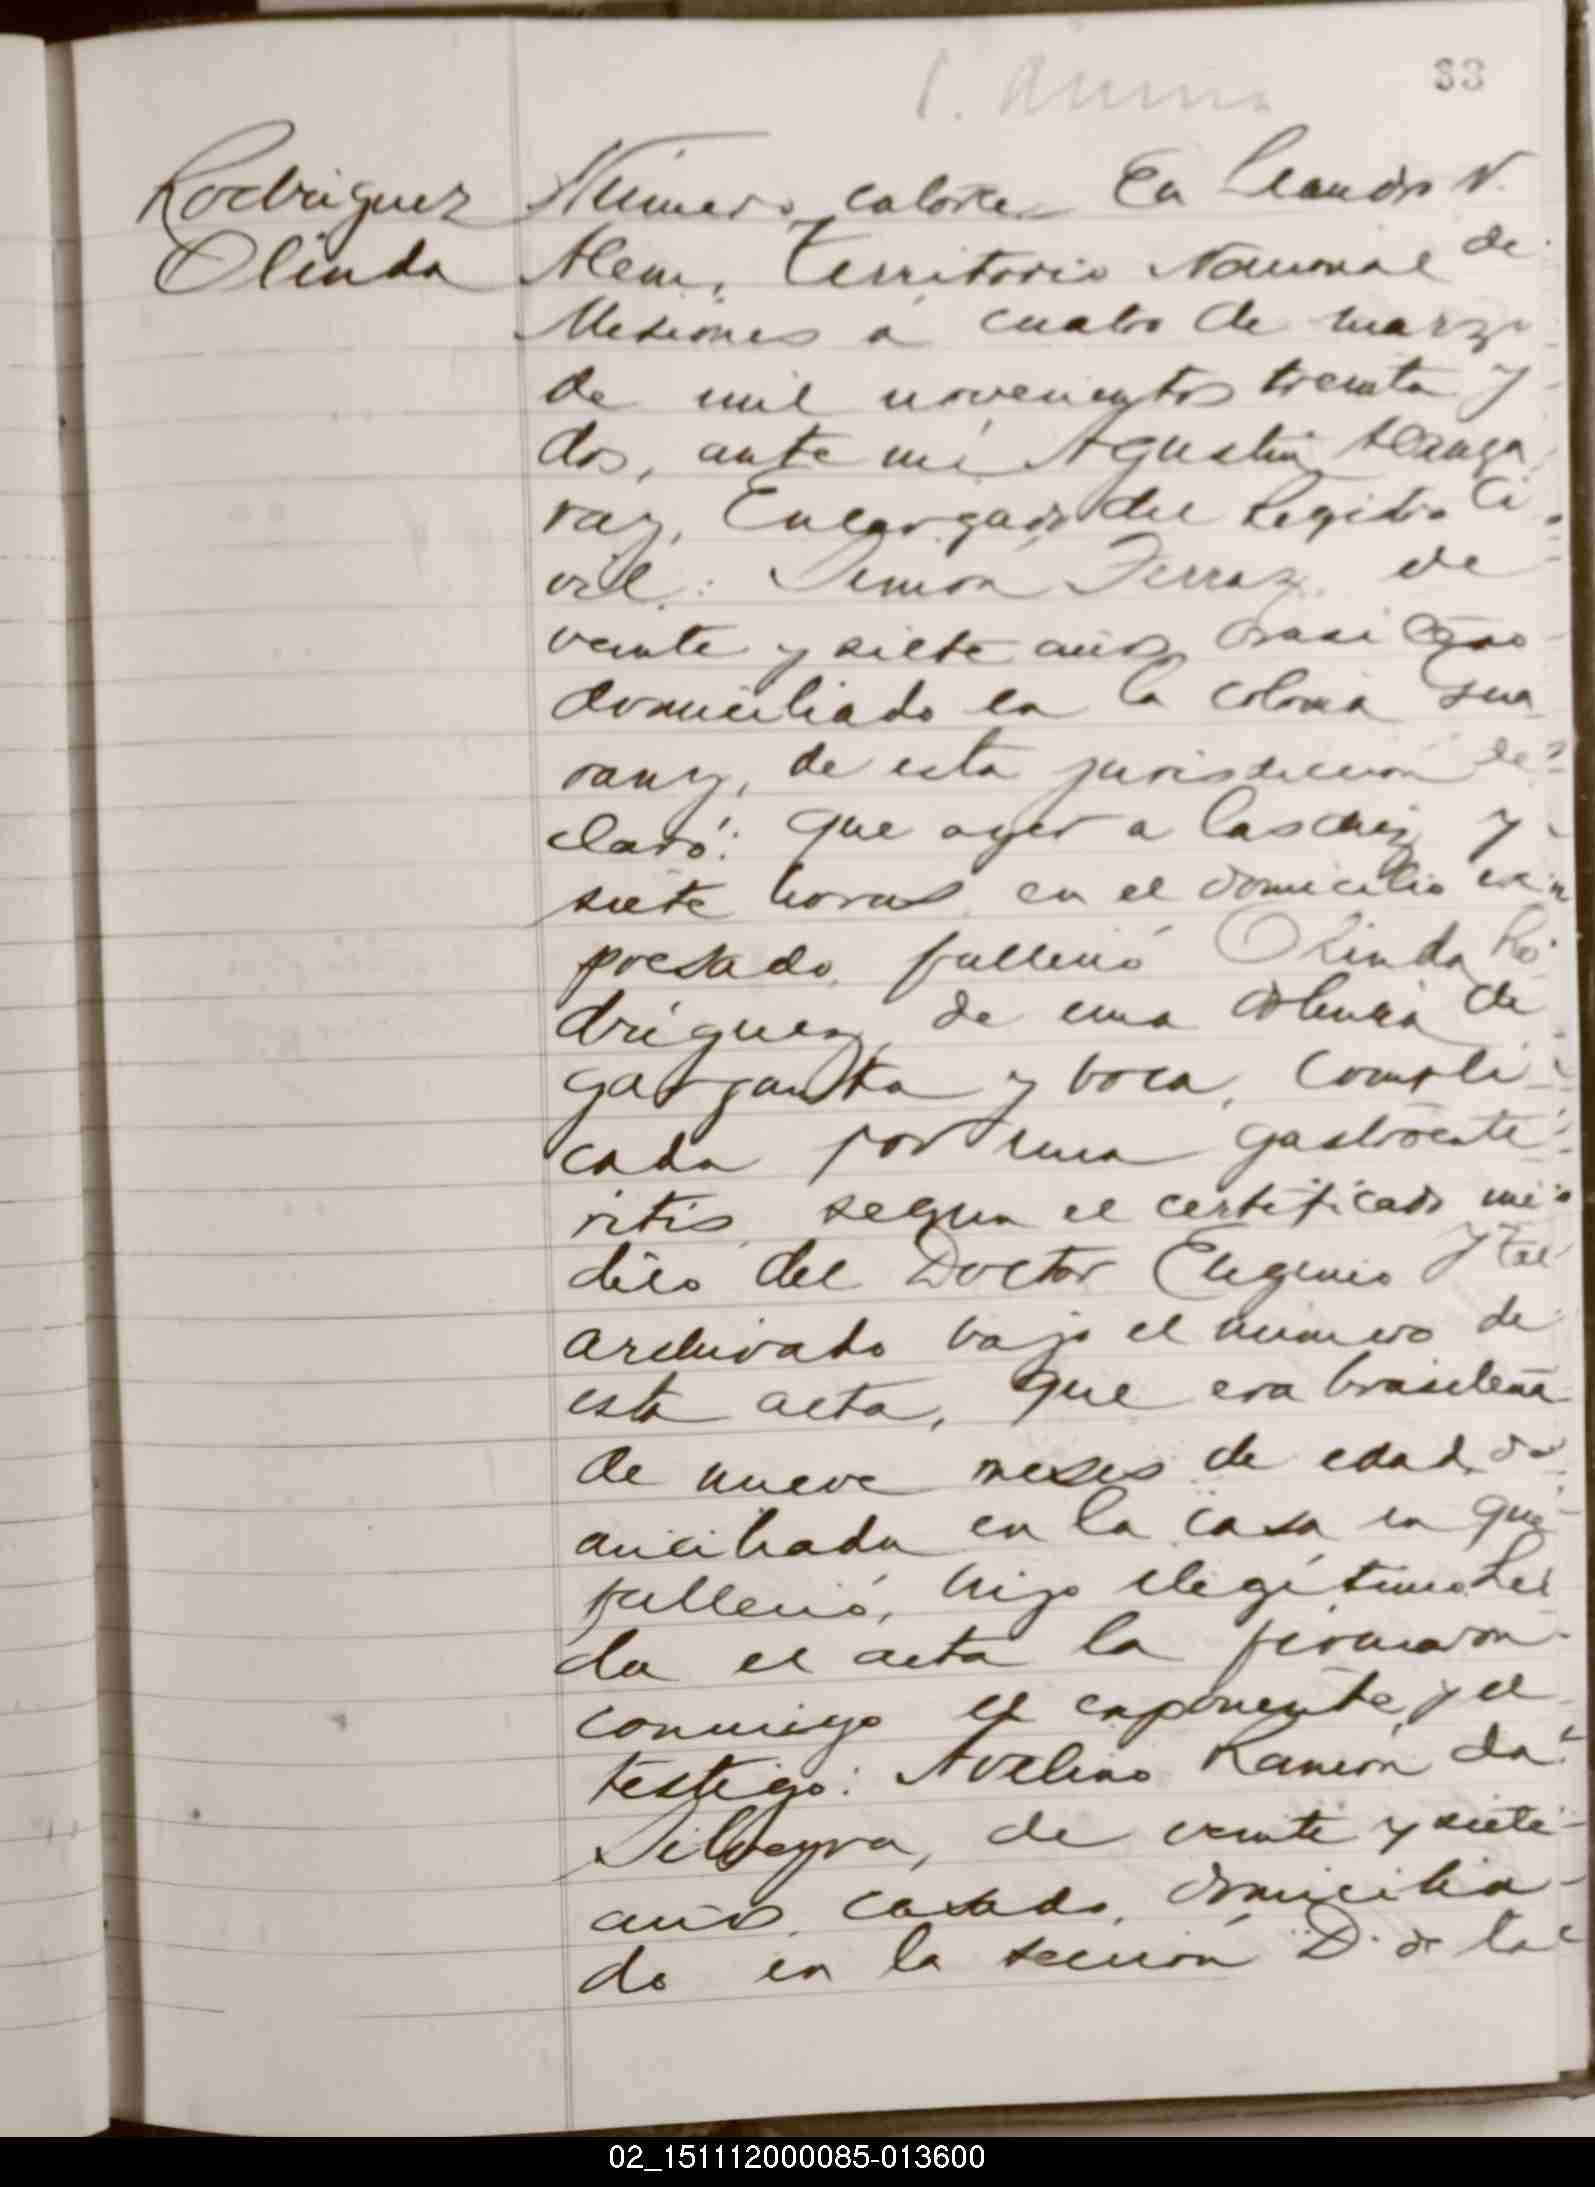 33
Rodriguez
Olinda
Número catorce En Leandro N.
Alem, Territorio Nacional de
Misiones á cuatro de marzo
de mil novecientos treinta y
dos, ante mi Agustin
ray, Encargado del Registro Ci
vil: Simón Ferraz de
veinte y siete años brasileño
domiciliado en la colonia Gua
rany, de esta jurisdicción de
claró: que ayer a las diez y
siete horas en el domicilio ex
presado, falleció Olinda Ro
driguez, de una dolencia de
garganta y boca, compli
cada por una gastroente
ritis, segun el certificado mé
dico del Doctor Eugenio
archivado bajo el número de
esta acta, que era brasileña
de nueve meses de edad, do
miciliada en la casa en que
falleció, hija ilegítima Lei
da el acta la firmaron
conmigo el exponente y el
testigo: Avelino Ramón da
Silveyra, de veinte y siete
años, casado, domicilia
do en la sección D. de la
02_151112000085-013600